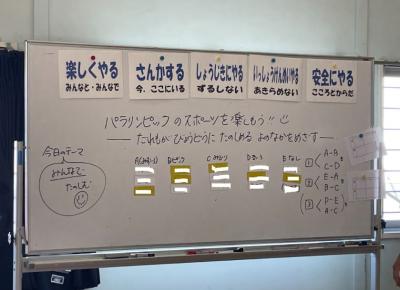 楽しくやる
みんなと・みんなで
さんかする
今、ここにいる
しょうじきにやる
ずるしない
いっしょうけんめいやる
あきらめない
安全にやる
こころとからだ
パラリンピックのスポーツを楽しもう!!
だれもがびょうどうにたのしめるよのなかをめざす
今日のテーマ
みんなで
たのしむ
Bピンク
Cみどり
Eなし
① A-B
C-D
② E-A
B-C
③ D-E
A-C